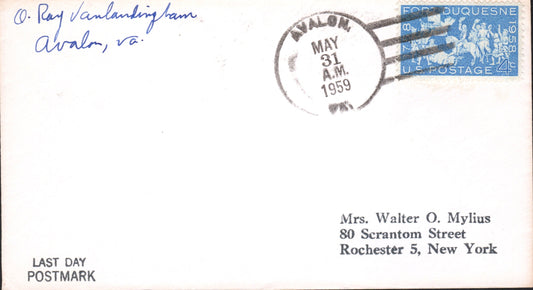 O. Ray Vanlandingham
Avalon, Va.
AVALON,
MAY
31
A.M.
1959
VA.
FORT DUQUESNE
1758
1958
U.S. POSTAGE 4¢
Mrs. Walter O. Mylius
80 Scrantom Street
Rochester 5, New York
LAST DAY
POSTMARK